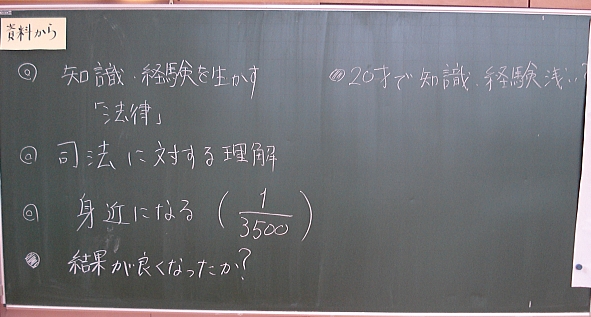 資料から
◎ 知識・経験を生かす
「法律」
◎ 司法に対する理解
◎ 身近になる (1/3500)
● 結果が良くなったか?
● 20才で知識・経験浅い?